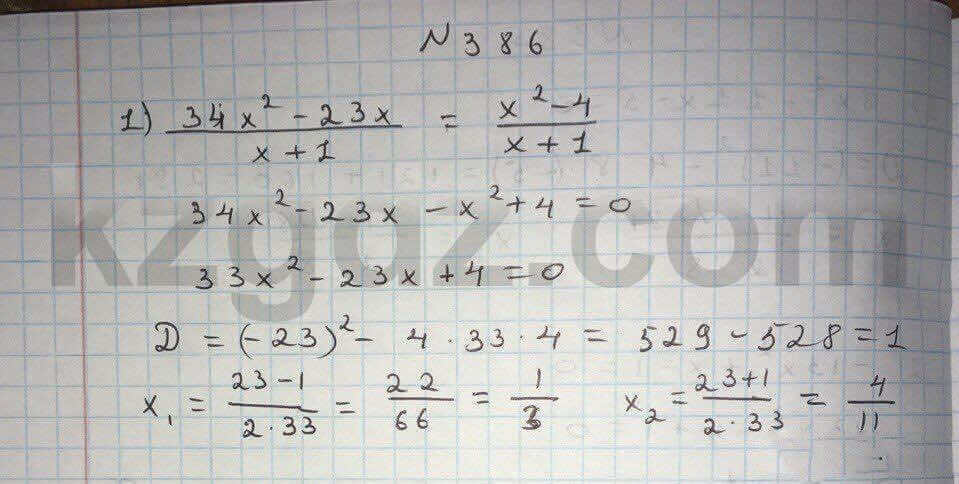 N 386
1) (34x² - 23x)/(x + 1) = (x² - 4)/(x + 1)
34x² - 23x - x² + 4 = 0
33x² - 23x + 4 = 0
D = (-23)² - 4 · 33 · 4 = 529 - 528 = 1
x₁ = (23 - 1)/(2 · 33) = 22/66 = 1/3 x₂ = (23 + 1)/(2 · 33) = 4/11
kzgdz.com